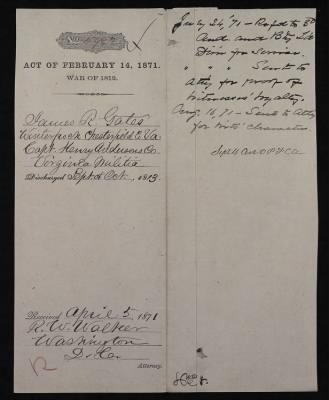 No.
ACT OF FEBRUARY 14, 1871.
WAR OF 1812.
James R. Gates
Winterpock Chesterfield Co Va
Capt. Henry Andersons Co.
Virginia Militia
Discharged Sept or Oct, 1813
Received April 5 1871
R. W. Walker
Washington
D. Co.
Attorney.
July 24, '71 - Refd to 3d
Aud. and Bty Ld
Divn for Service.
" " " Sent to
Atty for proof of
Witnesses' loyalty.
Aug. 16, 71 - Sent to Atty
for Wits' Character
Sept 11